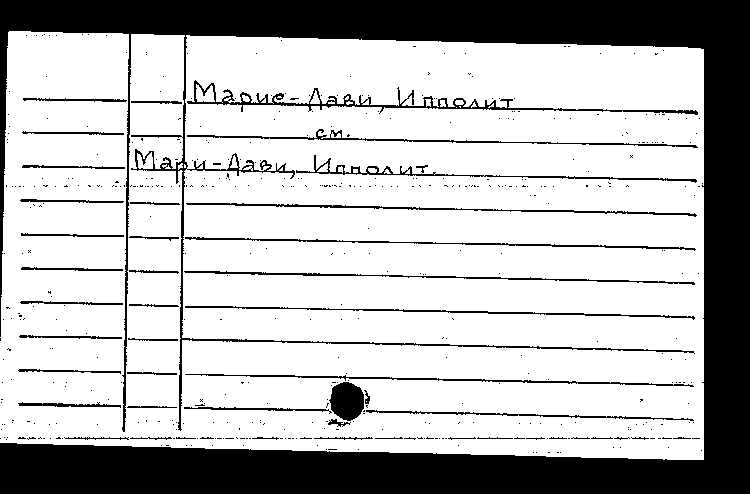 Марие-Дави, Ипполит
см.
Мари-Дави, Ипполит.